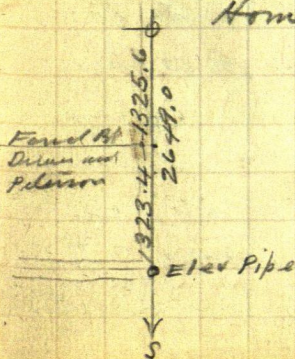 Hom
1325.6
2649.0
Fence Bt
Druer and
Peterson
1323.4
Elev Pipe
S